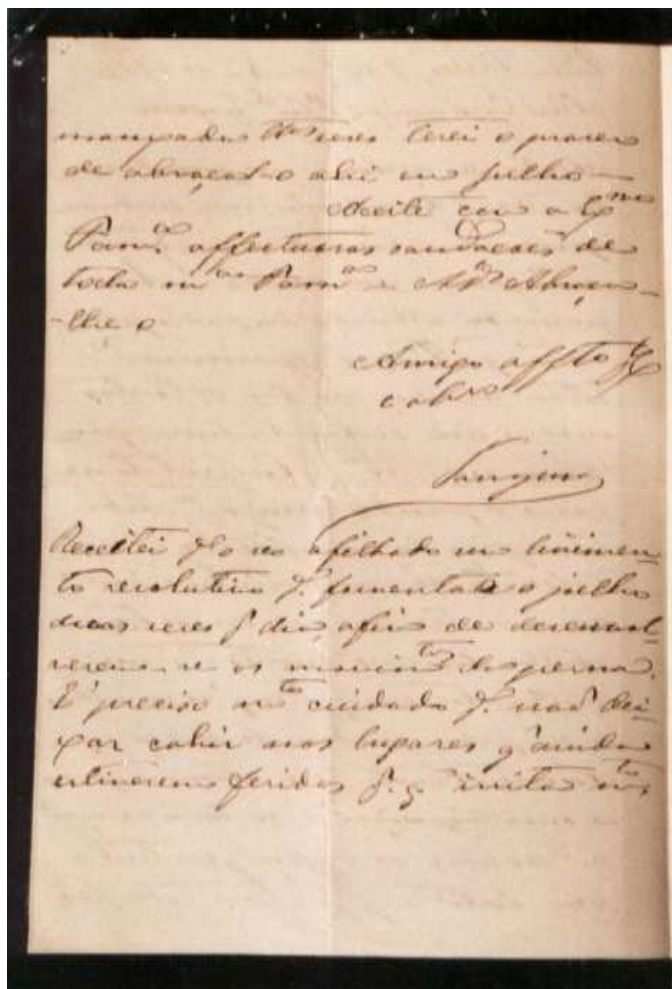 teres terei o prazer
de abraçal-o ahi em julho —
Aceite com a Exma
Famª affectuosas saudações de
toda mª Famª e Abraça-
-lhe o
Amigo affto
e obro
Receitei pª o seo afilhado um linimen-
to resolutivo pª fumentar o joelho
duas vezes p' dia, afim de desenvol-
verem-se os movimtos da perna.
É preciso mto cuidado pª não dei-
xar cahir nos lugares q' ainda
estiverem feridos p. q' irrita mto,